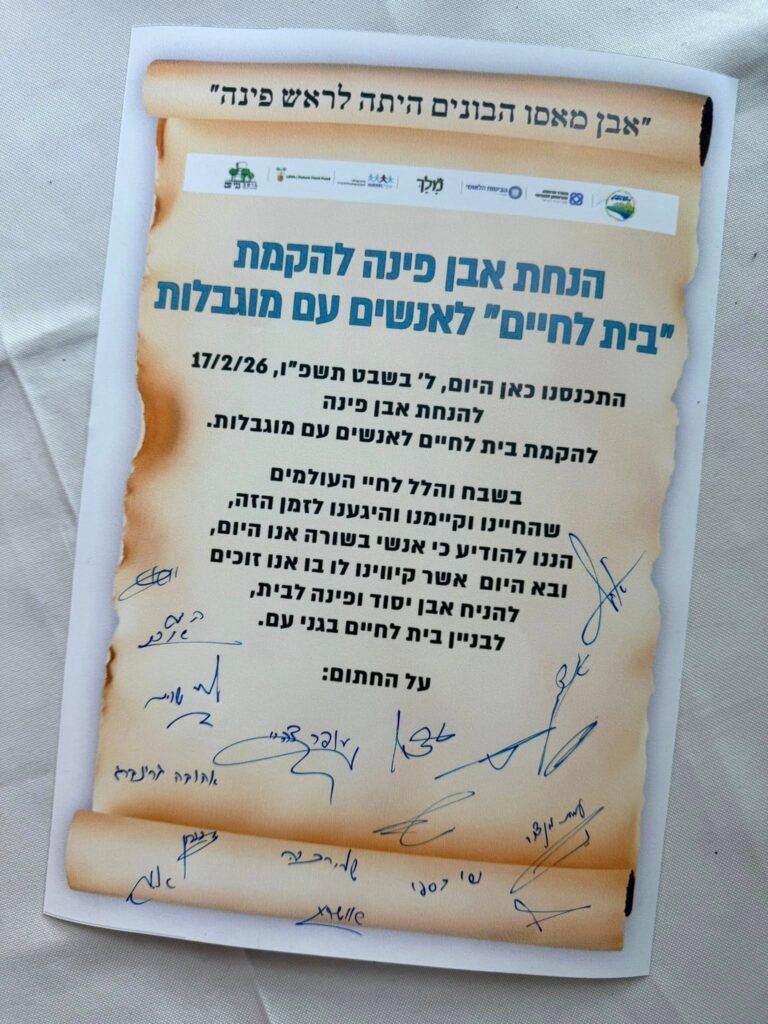 "אבן מאסו הבונים היתה לראש פינה"
מֶלֶךְ הביטוח הלאומי
הנחת אבן פינה להקמת
"בית לחיים" לאנשים עם מוגבלות
התכנסנו כאן היום, ל' בשבט תשפ"ו, 17/2/26
להנחת אבן פינה
להקמת בית לחיים לאנשים עם מוגבלות.
בשבח והלל לחיי העולמים
שהחיינו וקיימנו והיגענו לזמן הזה,
הננו להודיע כי אנשי בשורה אנו היום,
ובא היום אשר קיווינו לו בו אנו זוכים
להניח אבן יסוד ופינה לבית,
לבניין בית לחיים בגני עם.
על החתום:
אהובה גרינברג